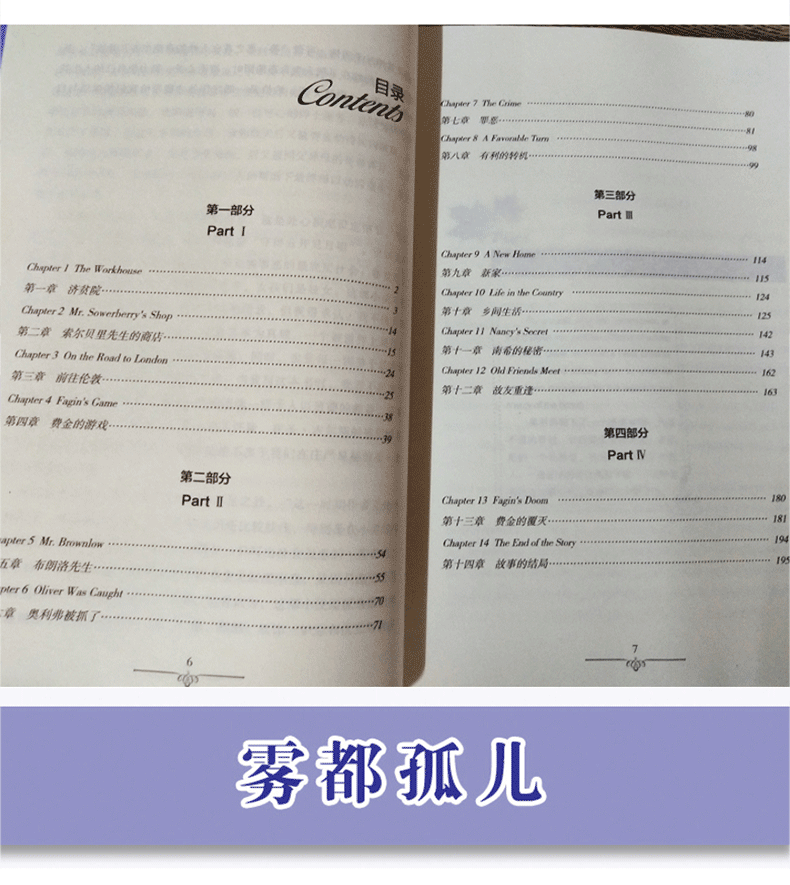 目录
Contents
第一部分
Part Ⅰ
Chapter 1 The Workhouse 2
第一章 济贫院 3
Chapter 2 Mr. Sowerberry's Shop 14
第二章 索尔贝里先生的商店 15
Chapter 3 On the Road to London 24
第三章 前往伦敦 25
Chapter 4 Fagin's Game 38
第四章 费金的游戏 39
第二部分
Part Ⅱ
apter 5 Mr. Brownlow 54
五章 布朗洛先生 55
pter 6 Oliver Was Caught 70
章 奥利弗被抓了 71
6
Chapter 7 The Crime 80
第七章 罪恶 81
Chapter 8 A Favorable Turn 98
第八章 有利的转机 99
第三部分
Part Ⅲ
Chapter 9 A New Home 114
第九章 新家 115
Chapter 10 Life in the Country 124
第十章 乡间生活 125
Chapter 11 Nancy's Secret 142
第十一章 南希的秘密 143
Chapter 12 Old Friends Meet 162
第十二章 故友重逢 163
第四部分
Part Ⅳ
Chapter 13 Fagin's Doom 180
第十三章 费金的覆灭 181
Chapter 14 The End of the Story 194
第十四章 故事的结局 195
7
雾都孤儿